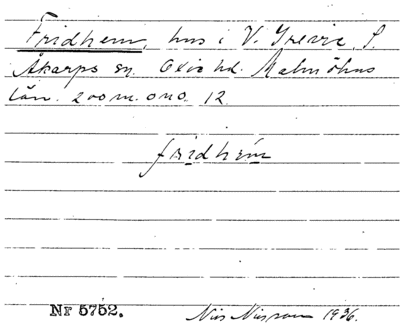 Fridhem, hus i V. Grevie, S.
Åkarps sn. Oxie hd. Malmöhus
län. 200 m. ono. 12.
fridhem
Nr 5752.
Nils Nilsson 1936.